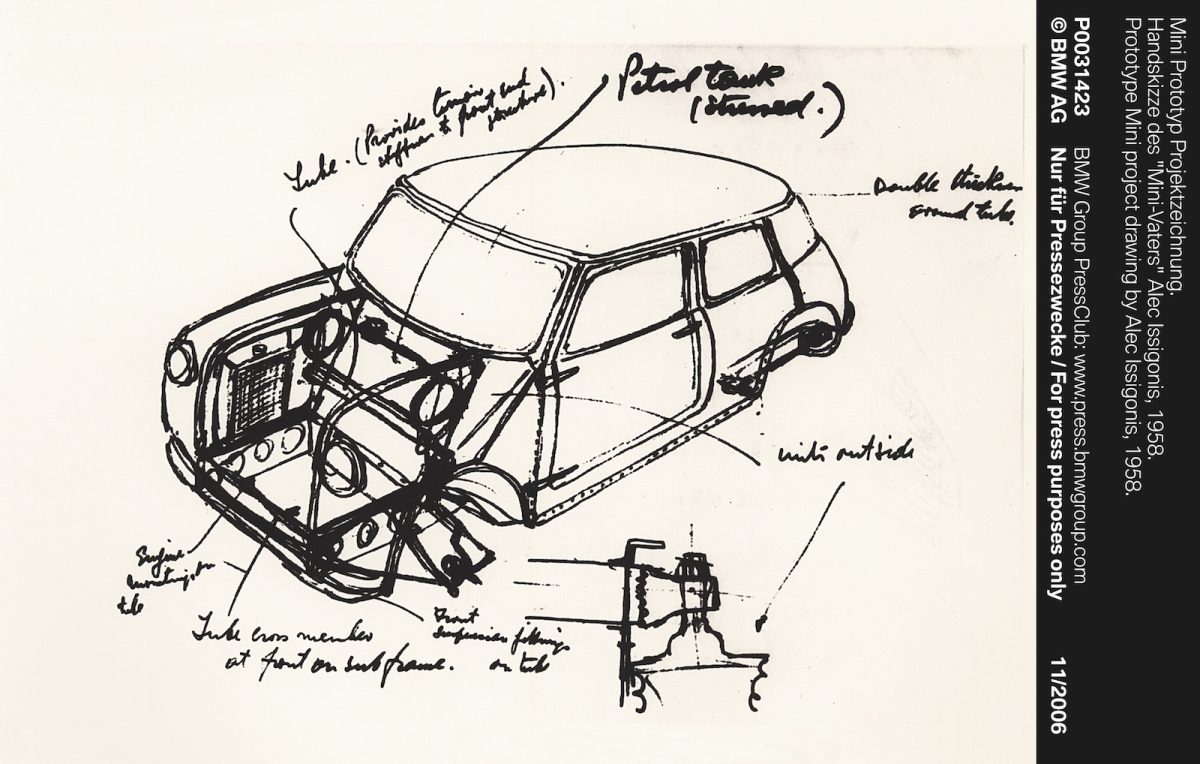 Petrol tank
(stressed.)
Tube. (Provides
stiffness to front end
structure).
Double thickness
around tube.
units outside
Engine
mountings on
tube
Tube cross member
at front on subframe.
Front
suspension fittings
on tube
Mini Prototyp Projektzeichnung.
Handskizze des "Mini-Vaters" Alec Issigonis, 1958.
Prototype Mini project drawing by Alec Issigonis, 1958.
P0031423 BMW Group PressClub: www.press.bmwgroup.com
© BMW AG Nur für Pressezwecke / For press purposes only 11/2006